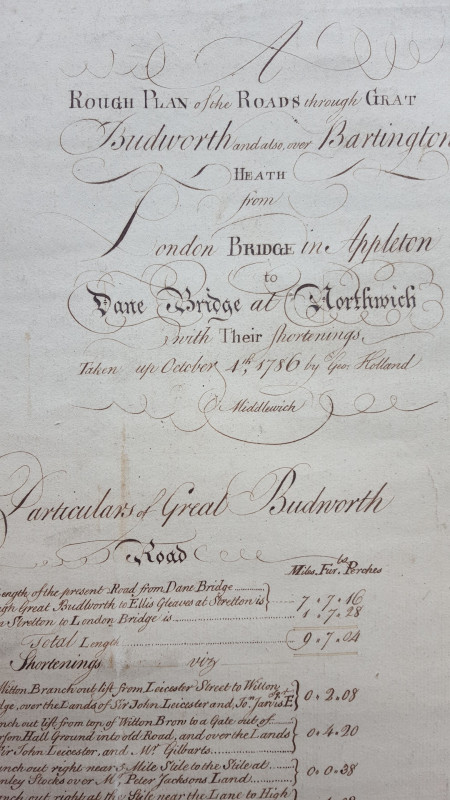 A
ROUGH PLAN of the ROADS through GRAT
Budworth and also, over Bartington
HEATH
from
London BRIDGE in Appleton
to
Dane Bridge at Northwich
with Their shortenings.
Taken up October 4th, 1786 by Geo: Holland
Middlewich
Particulars of Great Budworth
Road
Miles. Furths. Perches
Length of the present Road from Dane Bridge
Great Budworth to Ellis Gleaves at Stretton is 7 . 7 . 16
Stretton to London Bridge is 1 . 7 . 28
Total Length 9 . 7 . 04
Shortenings viz
Witton Branch out left from Leicester Street to Witton
over the Lands of Sir John Leicester and, Jon. Jarvis Esqr. 0 . 2 . 08
out left from top of Witton Brow to a Gate out of
Hall Ground into old Road, and over the Lands 0 . 4 . 20
Sir John Leicester, and Mr. Gilbarts
out right near 3 Mile Stile to the Stile at 0 . 0 . 38
Stocks over Mr. Peter Jacksons Land
out right at the Stile near the Lane to High